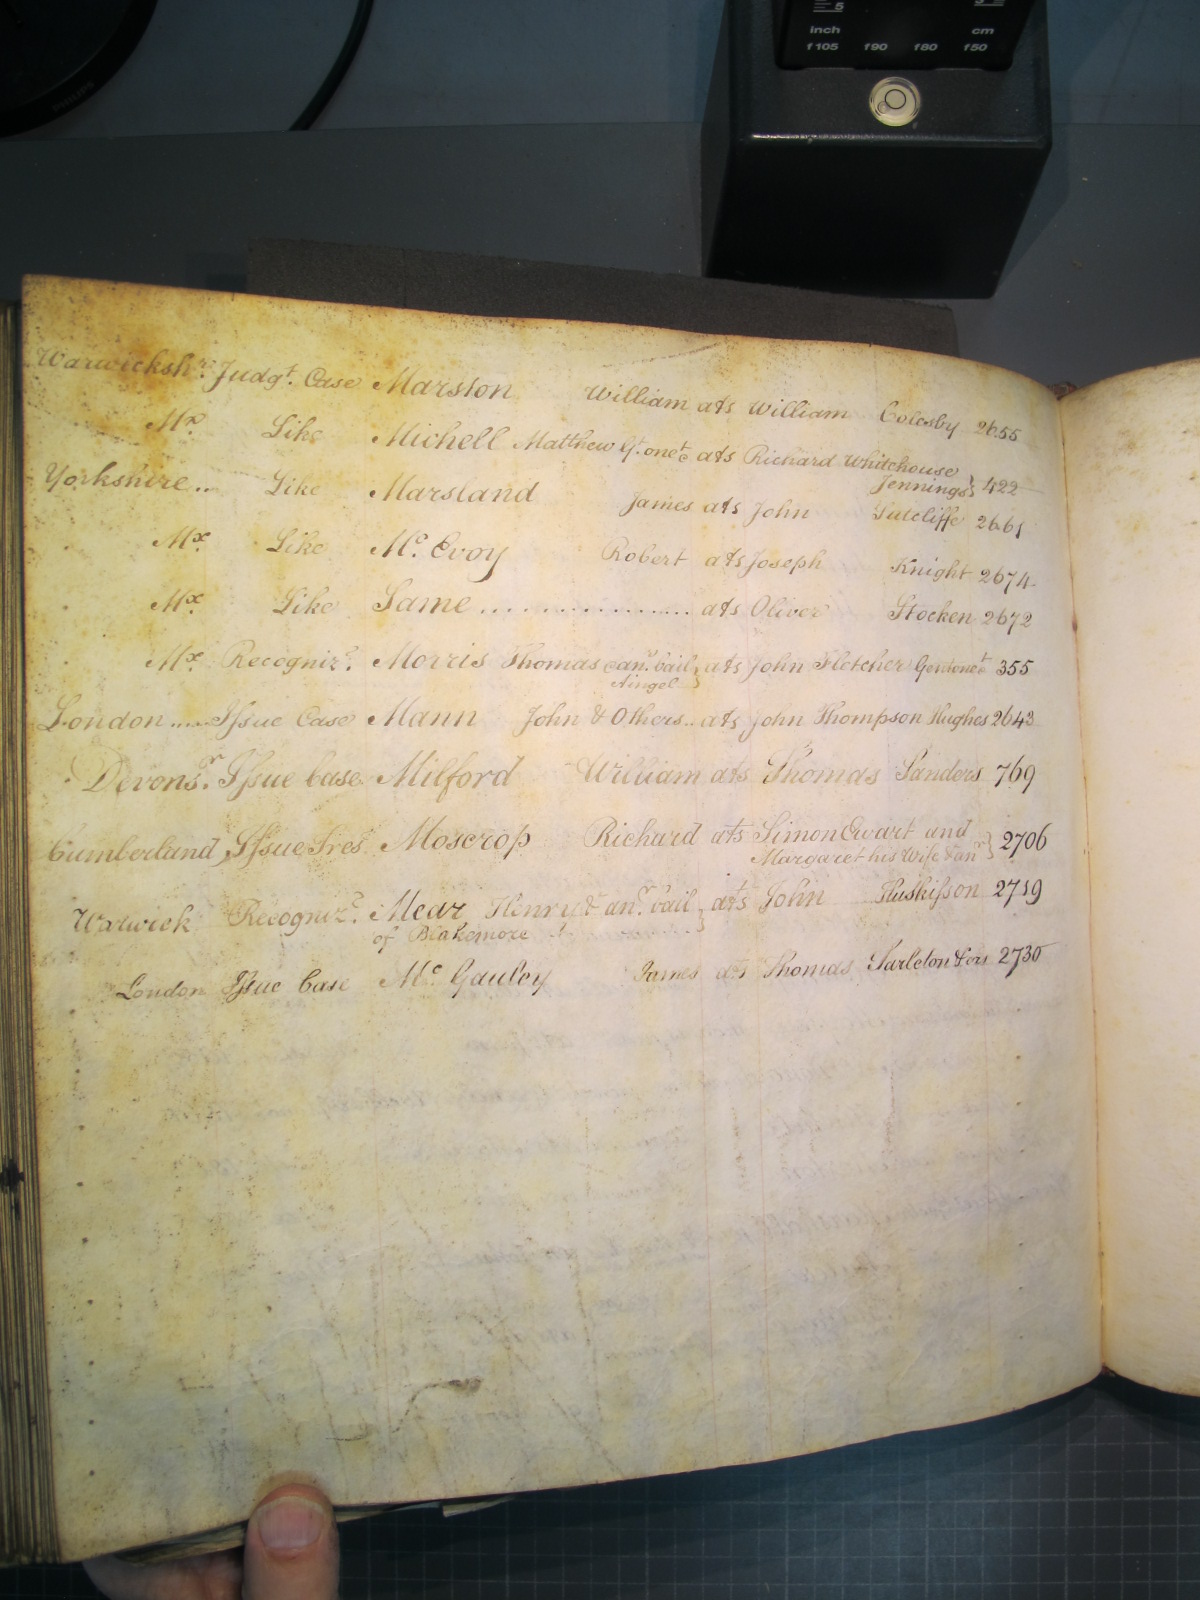 PHILIPS
5
inch cm
f105 f90 f80 f50
Warwickshre. Judgt. Case Marston William ats William Colesby 2655
Mx. Like Michell Matthew Gt. onec ats Richard Whitehouse
Jennings } 422
Yorkshire.. Like Marsland James ats John Sutcliffe 2661
Mx. Like Mc. Evoy Robert ats Joseph Knight 2674
Mx. Like Same .................. ats Oliver Stocken 2672
Mx. Recognizc. Morris Thomas & anr. bail } ats John Fletcher Gent onec 355
London ..... Issue Case Mann John & Others.. ats John Thompson Hughes 2643
Devonsr. Issue Case Milford William ats Thomas Sanders 769
Cumberland Issue Tres Moscrop Richard ats Simon Ewart and
Margaret his Wife & anr } 2706
Warwick Recognizc. Mear Henry & anr. bail } ats John Huskisson 2719
of Blakemore
London Issue Case Mc. Gauley James ats Thomas Tarleton & ors 2730